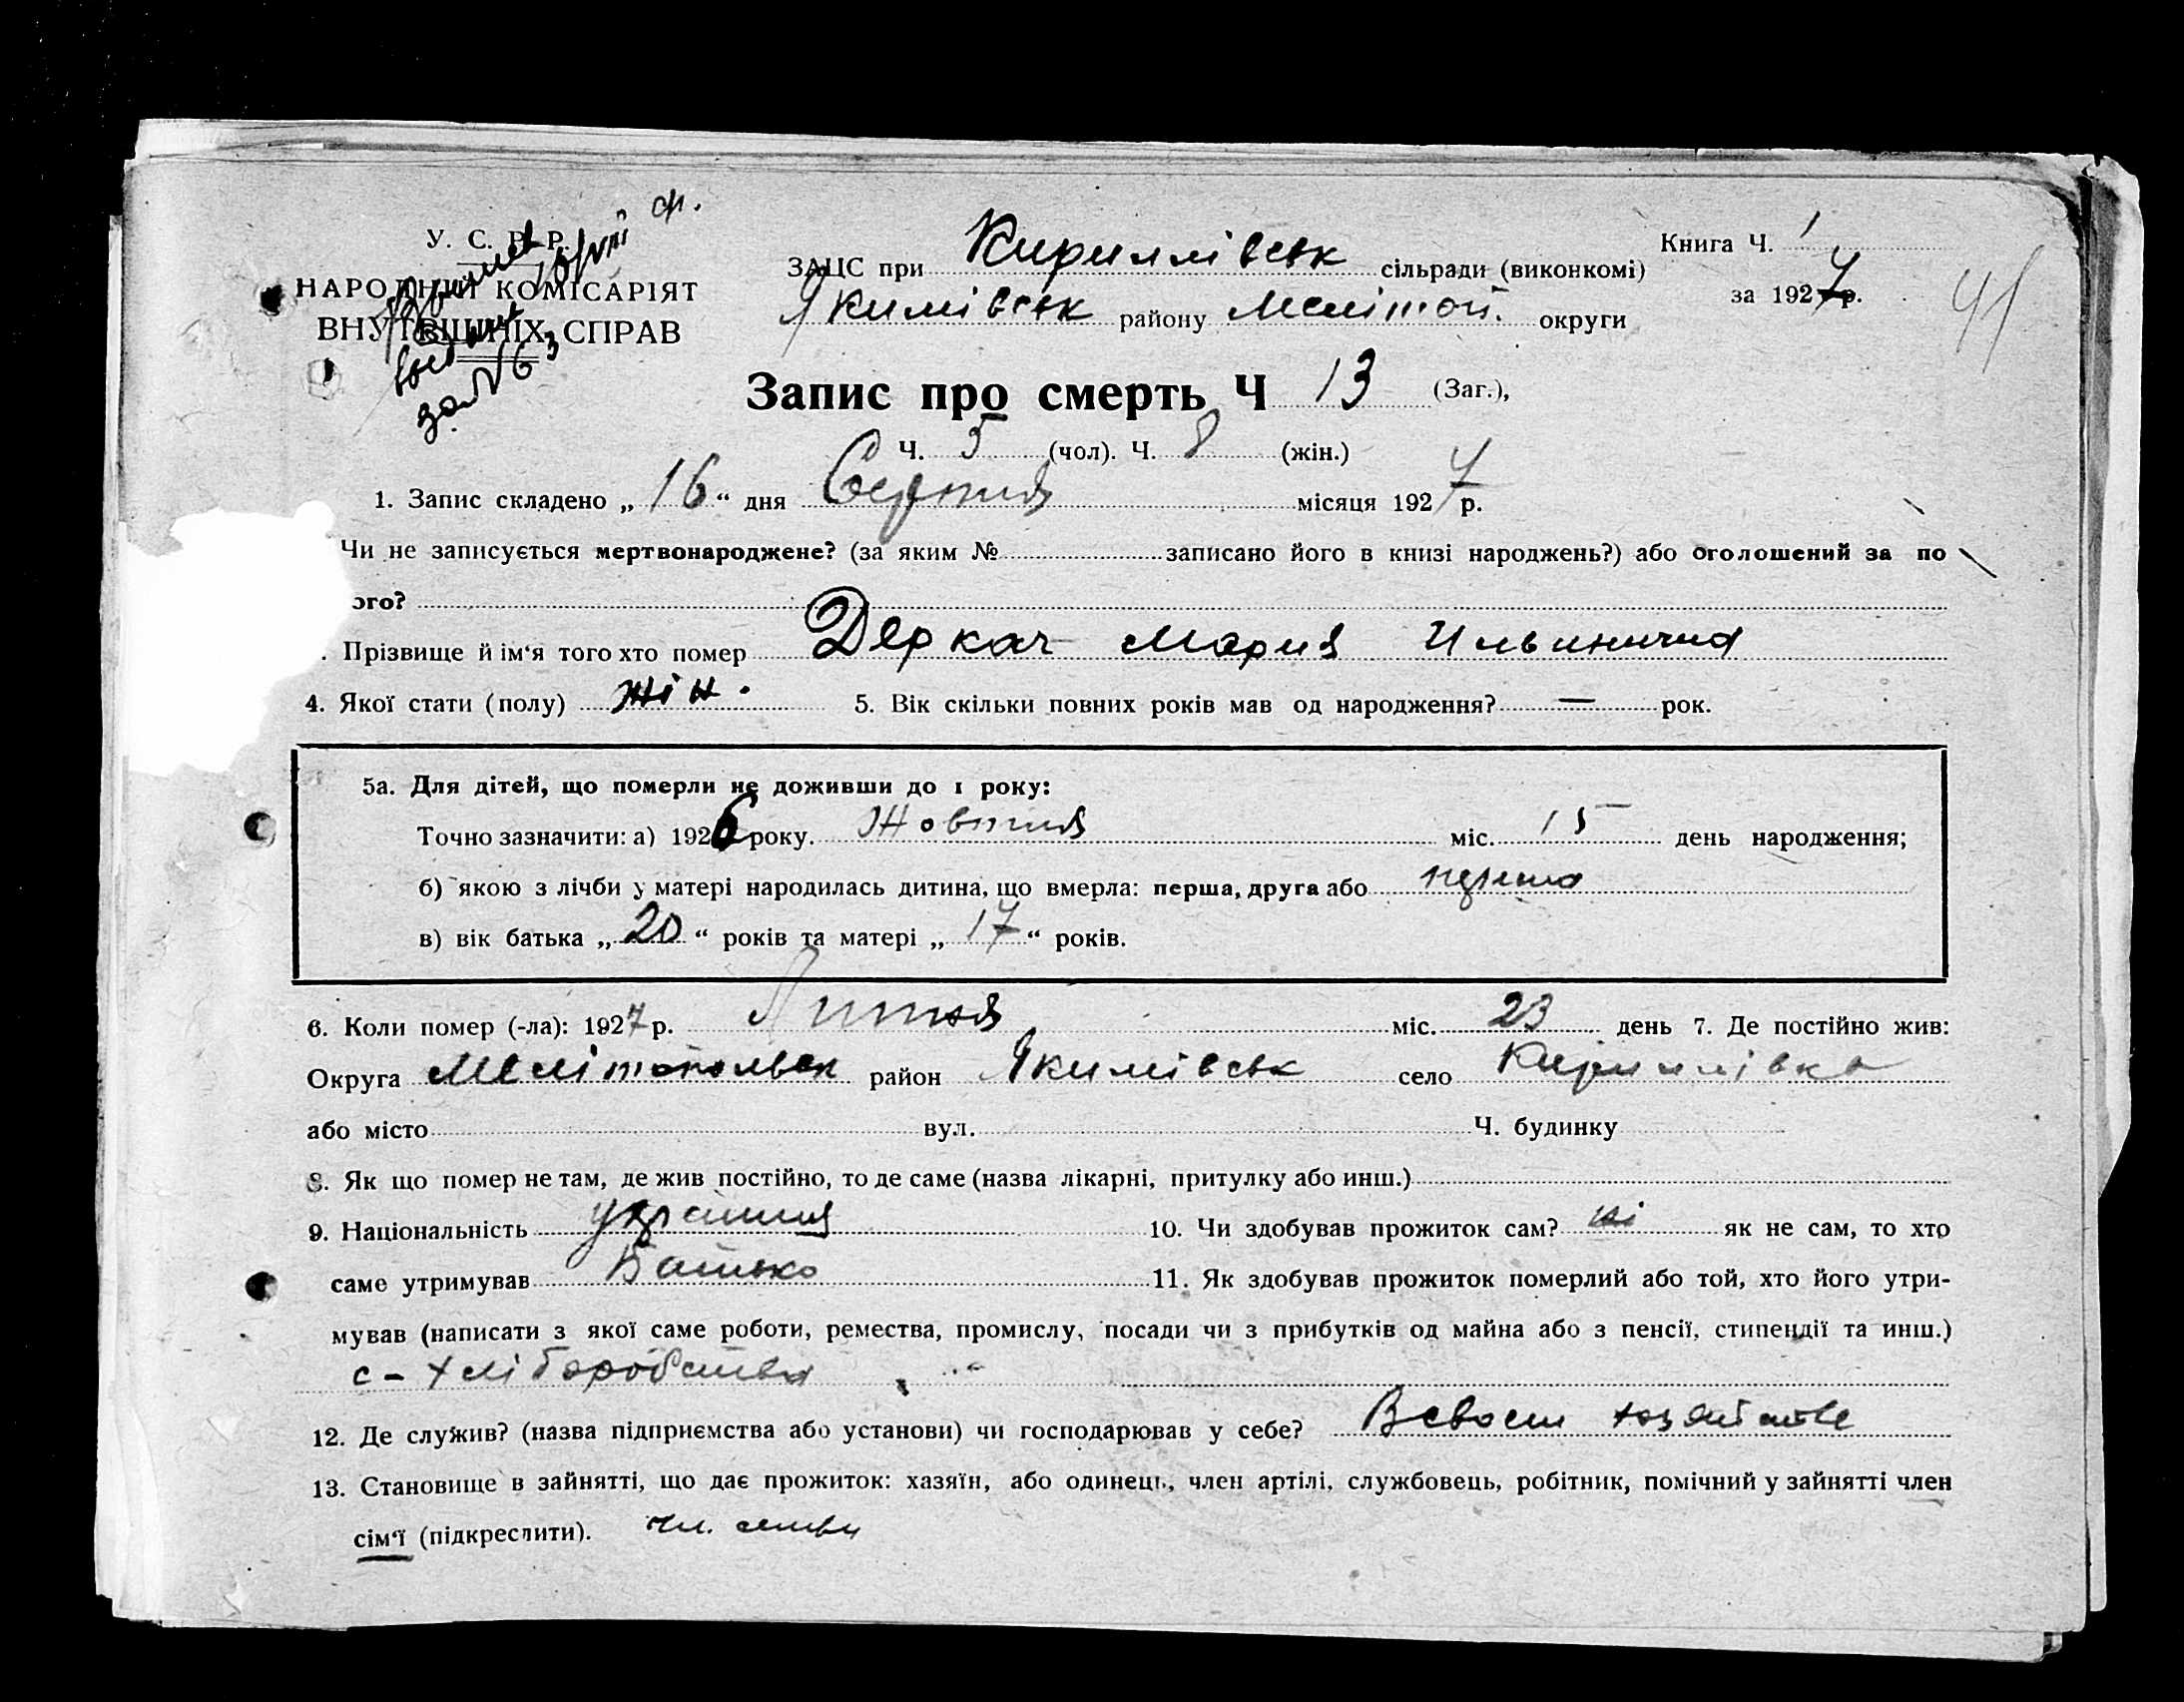 У. С. Р. Р.
НАРОДНИЙ КОМІСАРІЯТ
ВНУТРІШНІХ СПРАВ
за № 63
ЗАЦС при Кириллівськ сільради (виконкомі)
Якимівськ району Мелітоп. округи
Книга Ч. 1
за 1927 р.
41
Запис про смерть Ч 13 (Заг.),
Ч. 5 (чол). Ч. 8 (жін.)
1. Запис складено „16“ дня Серпня місяця 1927 р.
Чи не записується мертвонароджене? (за яким № записано його в книзі народжень?) або оголошений за по
ого?
. Прізвище й ім‘я того хто помер Деркач Мария Ильинична
4. Якої стати (полу) жін. 5. Вік скільки повних років мав од народження? — рок.
5а. Для дітей, що померли не доживши до 1 року:
Точно зазначити: а) 1926 року. Жовтня міс. 15 день народження;
б) якою з лічби у матері народилась дитина, що вмерла: перша, друга або перша
в) вік батька „20“ років та матері „17“ років.
6. Коли помер (-ла): 1927 р. Липня міс. 23 день 7. Де постійно жив:
Округа Мелітопольськ район Якимівськ село Кириллівка
або місто вул. Ч. будинку
8. Як що помер не там, де жив постійно, то де саме (назва лікарні, притулку або инш.)
9. Національність 10. Чи здобував прожиток сам? ні як не сам, то хто
саме утримував Батько 11. Як здобував прожиток померлий або той, хто його утри-
мував (написати з якої саме роботи, ремества, промислу, посади чи з прибутків од майна або з пенсії, стипендії та инш.)
с-хліборобства
12. Де служив? (назва підприємства або установи) чи господарював у себе? В своем хозяйстве
13. Становище в зайнятті, що дає прожиток: хазяїн, або одинець, член артілі, службовець, робітник, помічний у зайнятті член
сім‘ї (підкреслити). чл. семьи